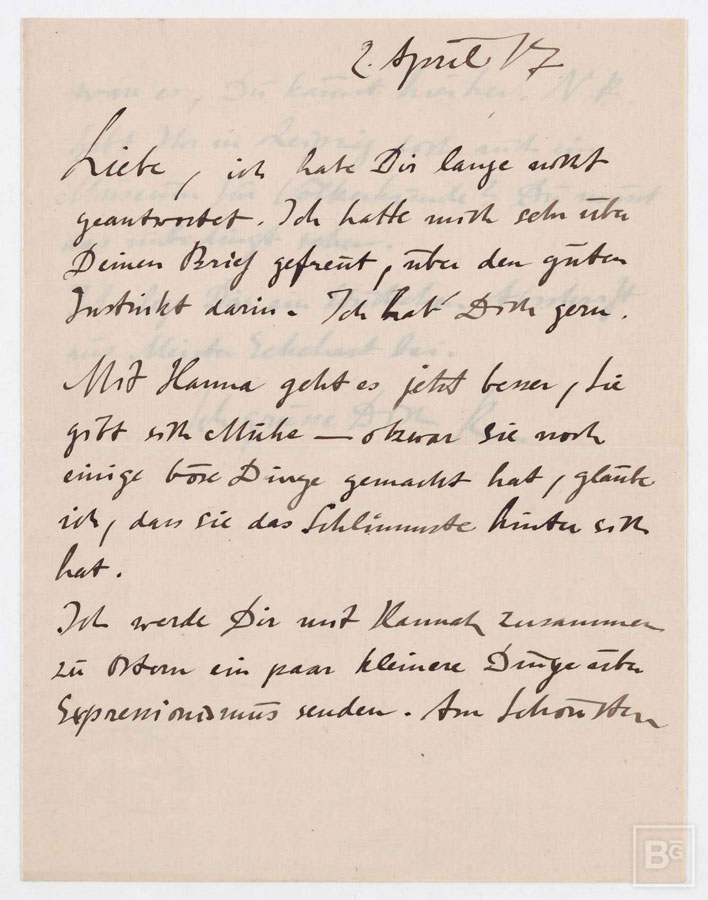 2. April 17
Liebe, ich habe Dir lange nicht
geantwortet. Ich hatte mich sehr über
Deinen Brief gefreut, über den guten
Instinkt darin. Ich hab Dich gern.
Mit Hanna geht es jetzt besser, sie
gibt sich Mühe — obzwar sie noch
einige böse Dinge gemacht hat, glaube
ich, dass sie das Schlimmste hinter sich
hat.
Ich werde Dir mit Hannah zusammen
zu Ostern ein paar kleinere Dinge über
Expressionismus senden. Am Schönsten
BG